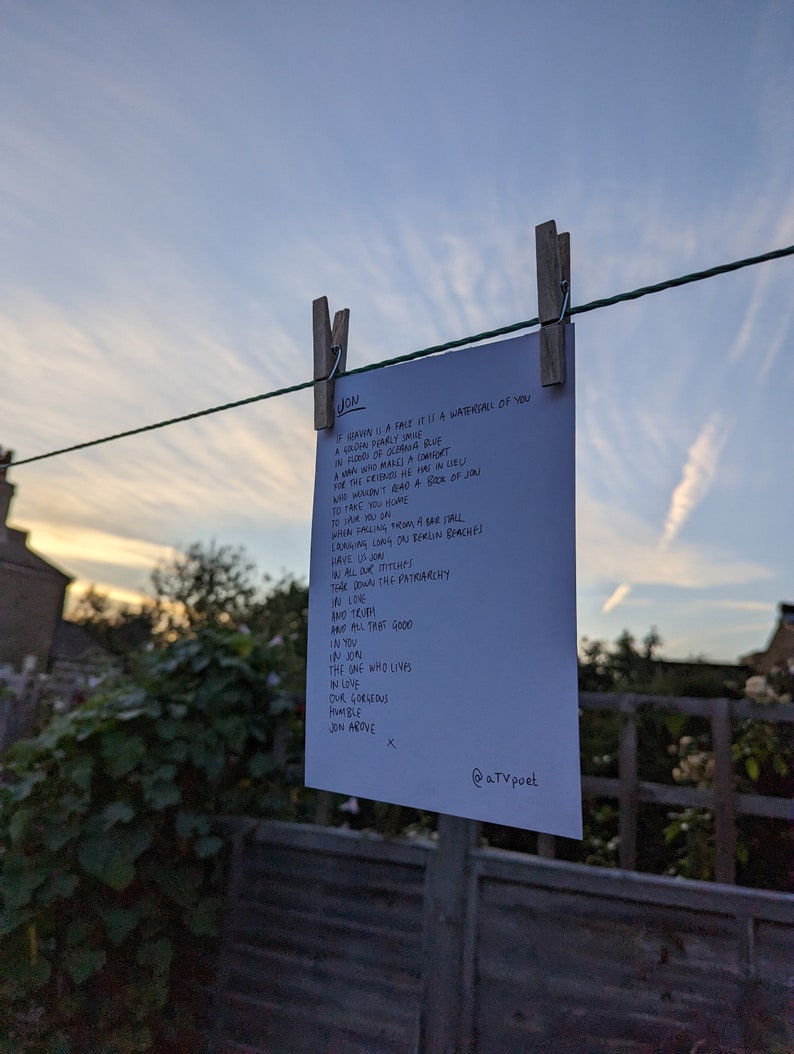 JON
IF HEAVEN IS A FACE IT IS A WATERFALL OF YOU
A GOLDEN PEARLY SMILE
IN FLOODS OF OCEANIA BLUE
A MAN WHO MAKES A COMFORT
FOR THE FRIENDS HE HAS IN LIEU
WHO WOULDN'T READ A BOOK OF JON
TO TAKE YOU HOME
TO SPUR YOU ON
WHEN FALLING FROM A BAR STALL
LOUNGING LONG ON BERLIN BEACHES
HAVE US JON
IN ALL OUR STITCHES
TEAR DOWN THE PATRIARCHY
IN LOVE
AND TRUTH
AND ALL THAT GOOD
IN YOU
IN JON
THE ONE WHO LIVES
IN LOVE
OUR GORGEOUS
HUMBLE
JON ABOVE
X
@aTVpoet